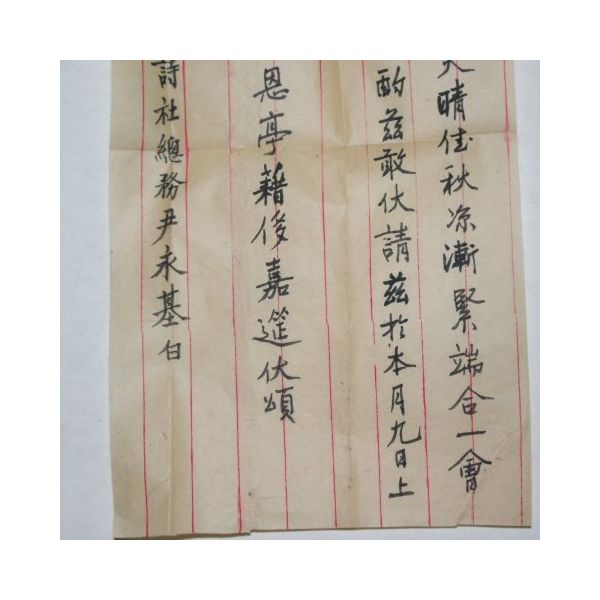 晴佳秋凉漸緊端合一會
酌茲敢伏請茲於本月九日上
恩亭藉俊嘉筵伏頌
詩社總務尹永基白